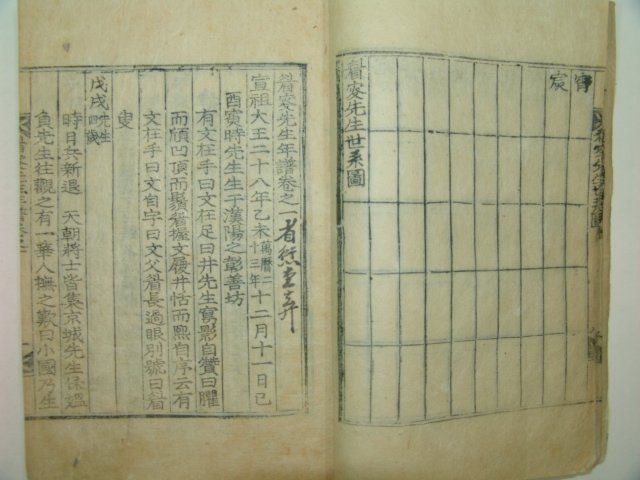 睂叜先生世系圖
睂叜先生年譜卷之一
宣祖大王二十八年乙未萬曆二十三年十二月十一日己
酉寅時先生生于漢陽之彰善坊
有文在手曰文在足曰井先生寫影自贊曰臞
而頎凹頂而鬚睂握文履井恬而熙自序云有
文在手曰文自字曰文父睂長過眼別號曰睂
叟
戊戌先生四歲
時日兵新退 天朝將士皆集京城先生保媼
負先生往觀之有一華人撫之歎曰小國乃生